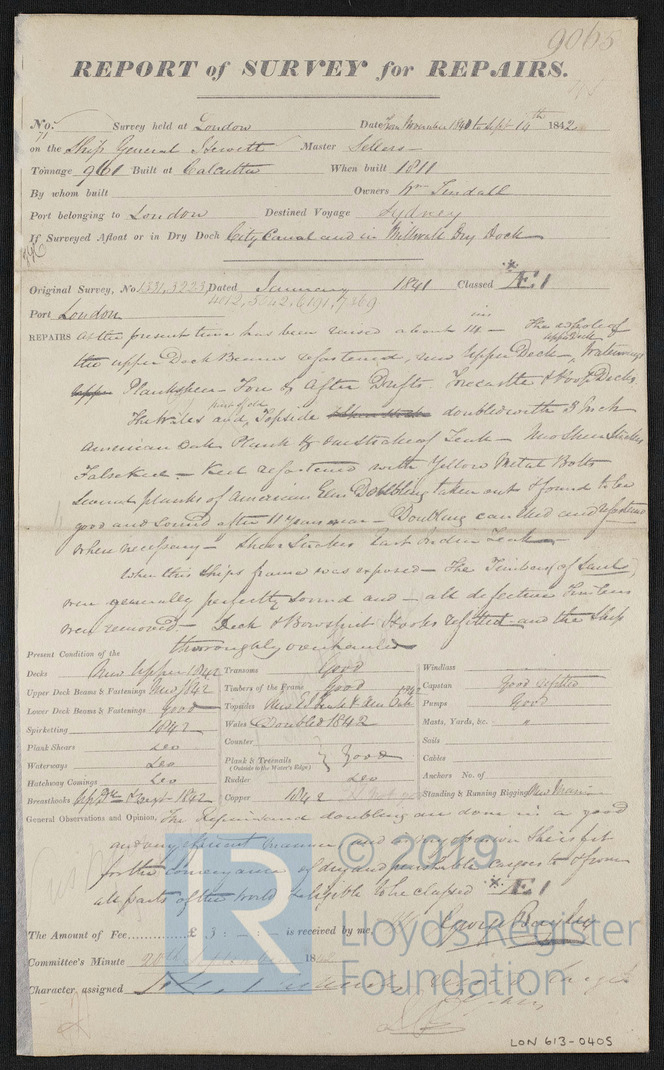 9065
REPORT of SURVEY for REPAIRS.
No. 71 Survey held at London Date from November 1840 to Sept 14th 1842
on the Ship General Hewett Master Sellers
Tonnage 961 Built at Calcutta When built 1811
By whom built Owners Wm Tindall
Port belonging to London Destined Voyage Sydney
If Surveyed Afloat or in Dry Dock City Canal and in Millwall Dry Dock
Original Survey, No. 1531, 3223 Dated January 1841 Classed Æ1
4012, 5642, 6191, 7869
Port London
REPAIRS At the present time has been raised about 14 ins The whole of
the upper Deck Beams refastened, new Upper Deck, Waterways
Plankshear Fore & After Drifts, Forecastle & Poop Decks
The Wales and part of old Topside doubled with 3 Inch
American Oak Plank & one strake of Teak New Sheer Strakes
False Keel Keel refastened with Yellow Metal Bolts
Several planks of American Elm Doubling taken out & found to be
good and sound after 11 years wear Doubling caulked and refastened
where necessary Sheer Strakes East India Teak
When this Ships frame was exposed The Timbers of Saul
were generally perfectly sound and all defective Timbers
were removed Deck & Bowsprit Hooks refitted and the Ship
thoroughly overhauled
Present Condition of the
Decks New Upper 1842 Transoms Good Windlass
Upper Deck Beams & Fastenings New 1842 Timbers of the Frame Good Capstan Good refitted
Lower Deck Beams & Fastenings Good Topsides Pumps Good
Spirketting 1842 Wales Doubled 1842 Masts, Yards, &c. "
Plank Shears Do Counter Sails
Waterways Do Plank & Treenails (Outside to the Water's Edge) Good Cables
Hatchway Comings Do Rudder Do Anchors No. of
Breasthooks 1842 Copper 1842 Standing & Running Rigging
General Observations and Opinion, The Repairs and doubling are done in a good
and very efficient manner and in my opinion She is fit
for the Conveyance of dry and perishable Cargoes to & from
all parts of the World & eligible to be classed Æ1
The Amount of Fee £ 3 : – : – is received by me, George Bayley
Committee's Minute 20th September 1842
Character assigned
© 2019
LR
Lloyd's Register
Foundation
LON 613-0405